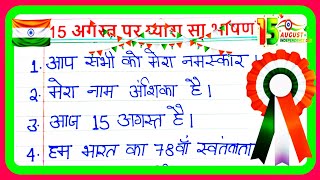 15 अगस्त पर प्यारा सा भाषण
15
AUGUST
1. आप सभी को मेरा नमस्कार
2. मेरा नाम अंशिका है।
3. आज 15 अगस्त है।
4. हम भारत का 78वाँ स्वतंत्रता